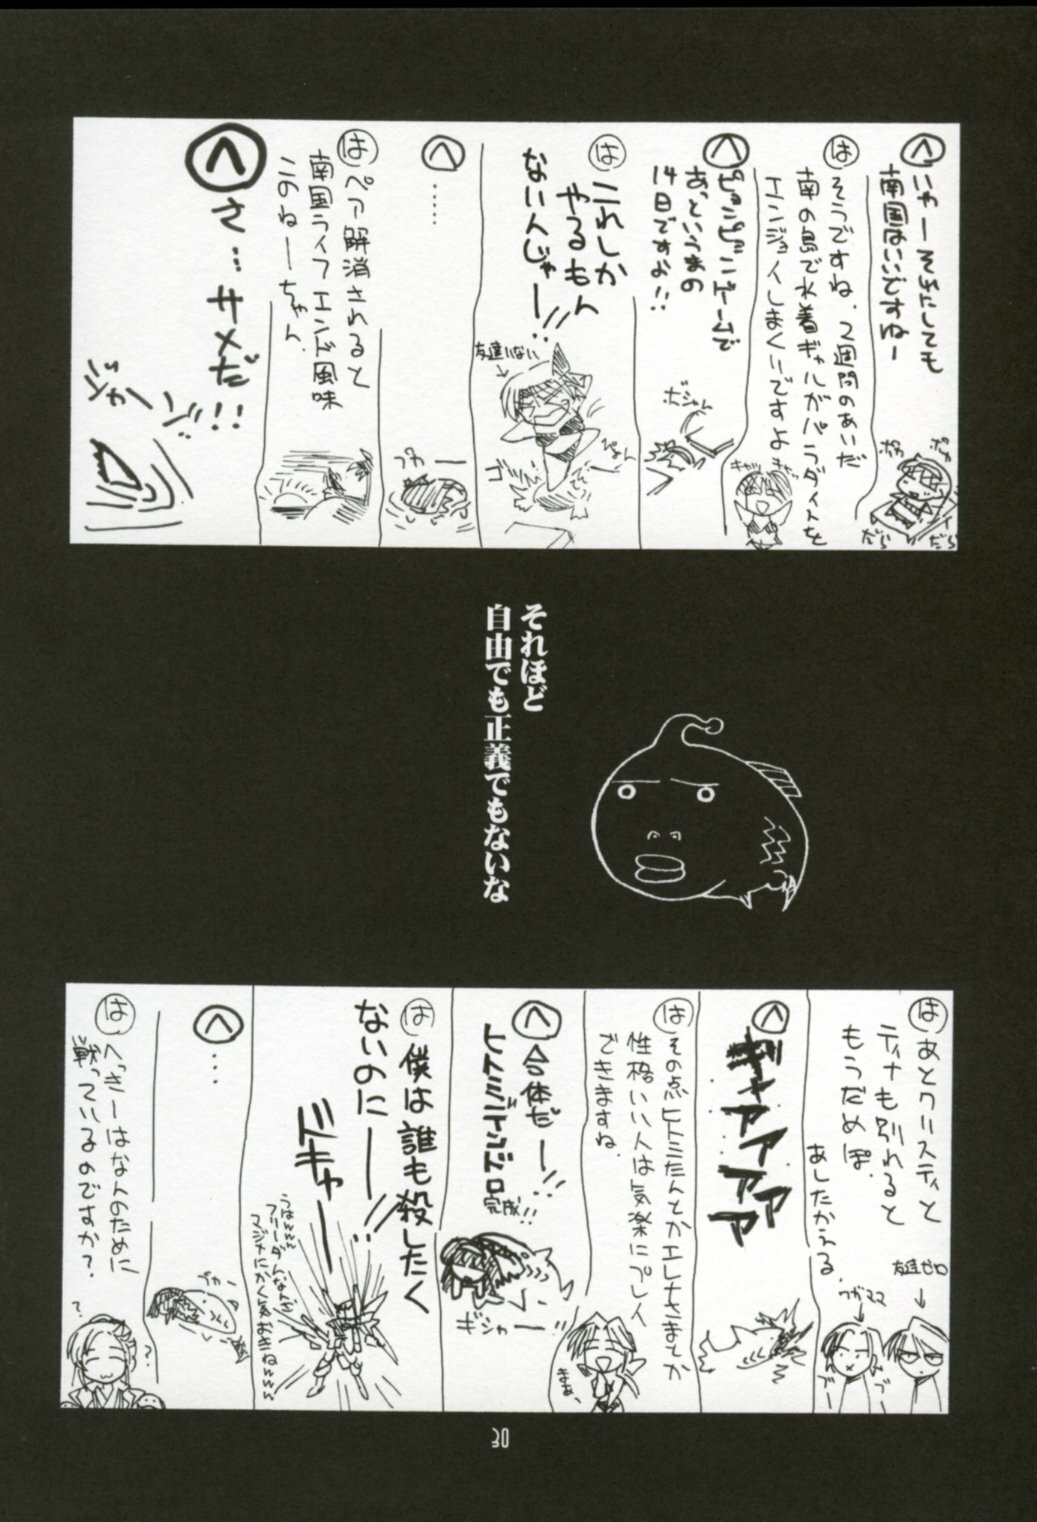 へ いやーそれにしても
南国はいいですねー
ポヤ
ポヤ
だら
だら
は そうですね。2週間のあいだ
南の島で水着ギャルがパラダイスを
エンジョイしまくりですよ
キャッ
へ ピョンピョンゲームで
あっというまの
14日ですよ!!
ボシャーン
は これしか
やるもん
ない人じゃー!!
友達いない
ぴょん
ゴゴ
へ ……
プカー
は ペア解消されると
南国ライフエンド風味
このねーちゃん
へ さ…サメだ!!
ジャーン
それほど
自由でも正義でもないな
は あとクリスティと
ティナも別れると
もうだめぽ。
あしたかえる。
友達ゼロ
ブザママ
ブ
ブ
へ ギャアアアアアア
は その点ヒトミたんとかエレナさまとか
性格いい人は気楽にプレイ
できますね。
まぁ、
へ 合体だー!!
ヒトミデンドロ
完成!!
ギシャー
は 僕は誰も殺したく
ないのにー!!
ドキャー
うはwww
フリーダムなんぞ
マジやにかく気おきねwwww
へ …
プカー
は へっきーはなんのために
戦っているのですか?
?
?
30